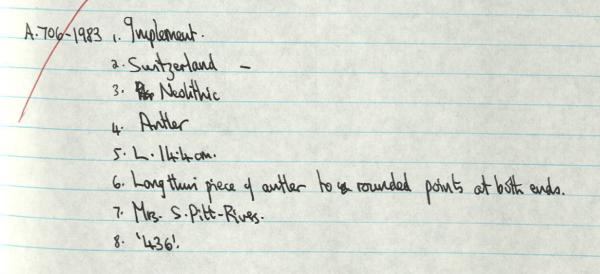 A.706-1983 1. Implement.
2. Switzerland –
3. Neolithic
4. Antler
5. L. 14.4cm.
6. Long thin piece of antler to rounded points at both ends.
7. Mrs. S. Pitt-Rivers.
8. '436'.